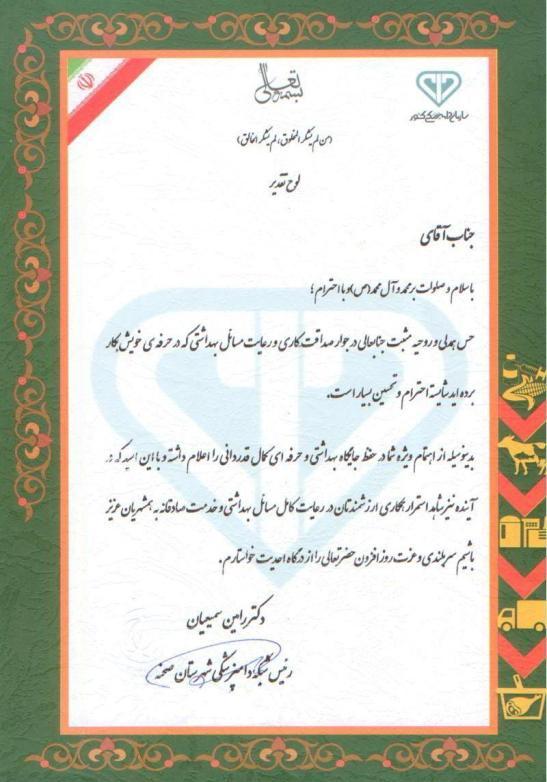 بسمه تعالی
سازمان دامپزشکی کشور
(من لم یشکر المخلوق، لم یشکر الخالق)
لوح تقدیر
جناب آقای
با سلام و صلوات بر محمد و آل محمد (ص) و با احترام؛
حس همدلی و روحیه مثبت جنابعالی در جوار صداقت کاری و رعایت مسائل بهداشتی که در حرفه ی خویش بکار
برده اید شایسته احترام و تحسین بسیار است.
بدینوسیله از اهتمام ویژه شما در حفظ جایگاه بهداشتی و حرفه ای کمال قدردانی را اعلام داشته و با این امید که در
آینده نیز شاهد استمرار همکاری ارزشمندتان در رعایت کامل مسائل بهداشتی و خدمت صادقانه به همشهریان عزیز
باشیم سربلندی و عزت روز افزون حضرتعالی را از درگاه احدیت خواستارم.
دکتر رامین سمیعیان
رئیس شبکه دامپزشکی شهرستان صحنه